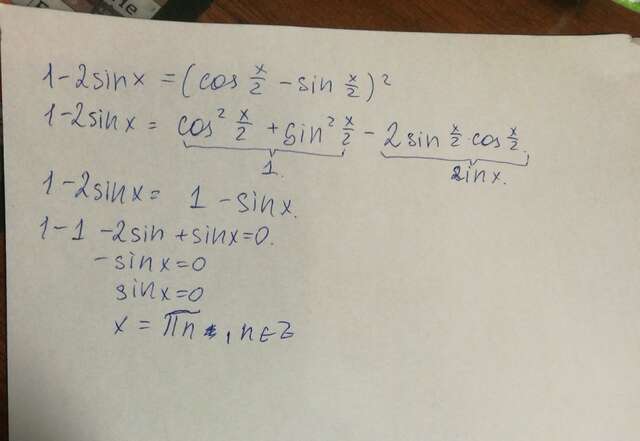 1-2sinx = (cos x/2 - sin x/2)²
1-2sinx = cos² x/2 + sin² x/2 - 2sin x/2 · cos x/2.
1. sinx.
1-2sinx = 1 - sinx.
1-1 -2sin + sinx=0.
-sinx=0
sinx=0
x = πn, n∈Z